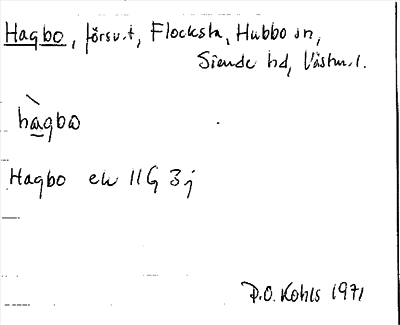 Hagbo, försv.t, Flocksta, Hubbo sn,
Siende hd, Västm. l.
hàgbo
Hagbo ek 11G 3j
P.O. Kohls 1971